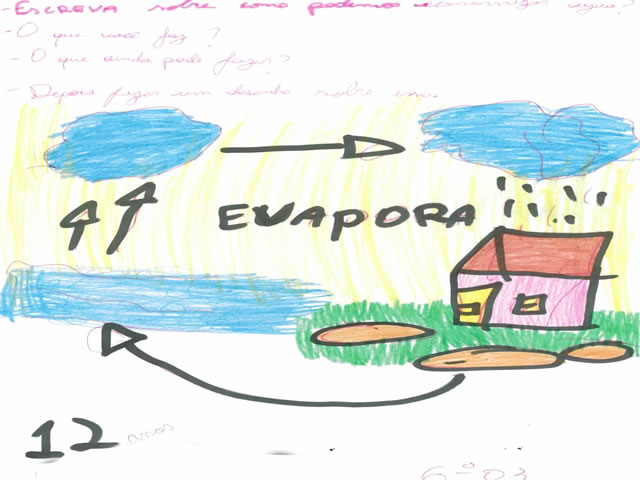 - ESCREVA sobre como podemos economizar água?
- O que você faz ?
- O que ainda pode fazer?
- Depois fazer um desenho sobre isso.
EVAPORA
12 anos